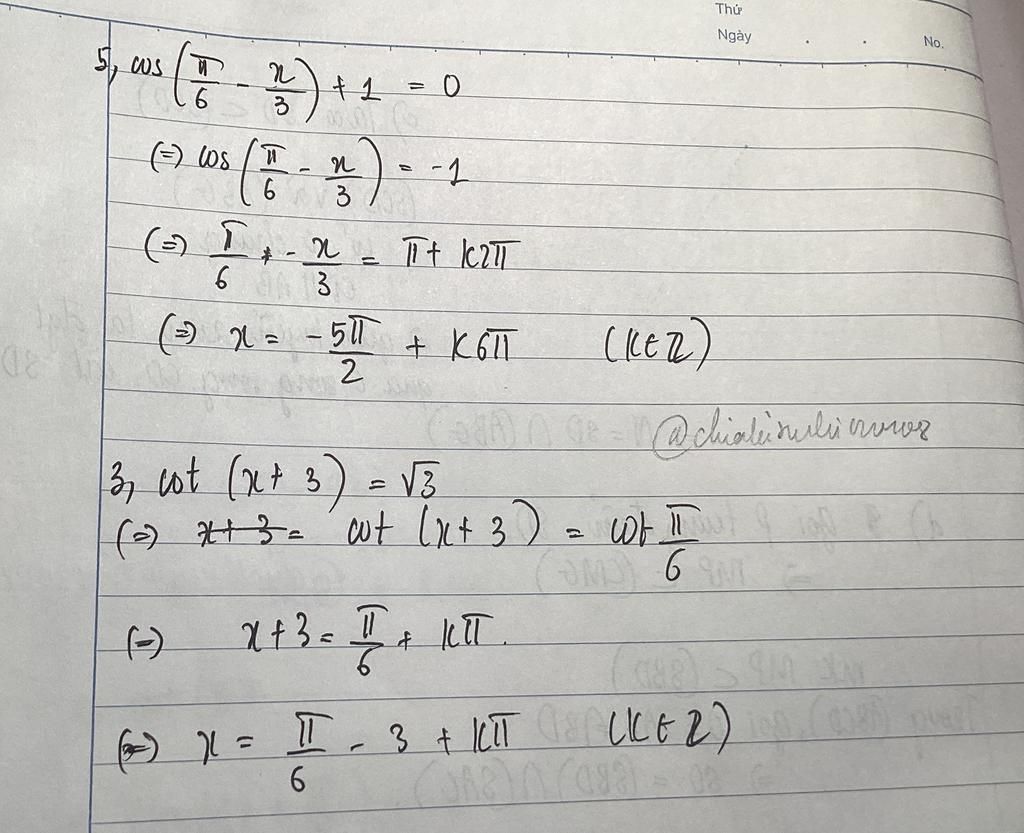 Thứ
Ngày . . No.
5, cos(π/6 - x/3) + 1 = 0
(=) cos(π/6 - x/3) = -1
(=) π/6 - x/3 = π + k2π
(=) x = -5π/2 + k6π (k∈Z)
3, cot (x+3) = √3
(=) cot (x+3) = cot π/6
(=) x+3 = π/6 + kπ.
(=) x = π/6 - 3 + kπ (k∈Z)